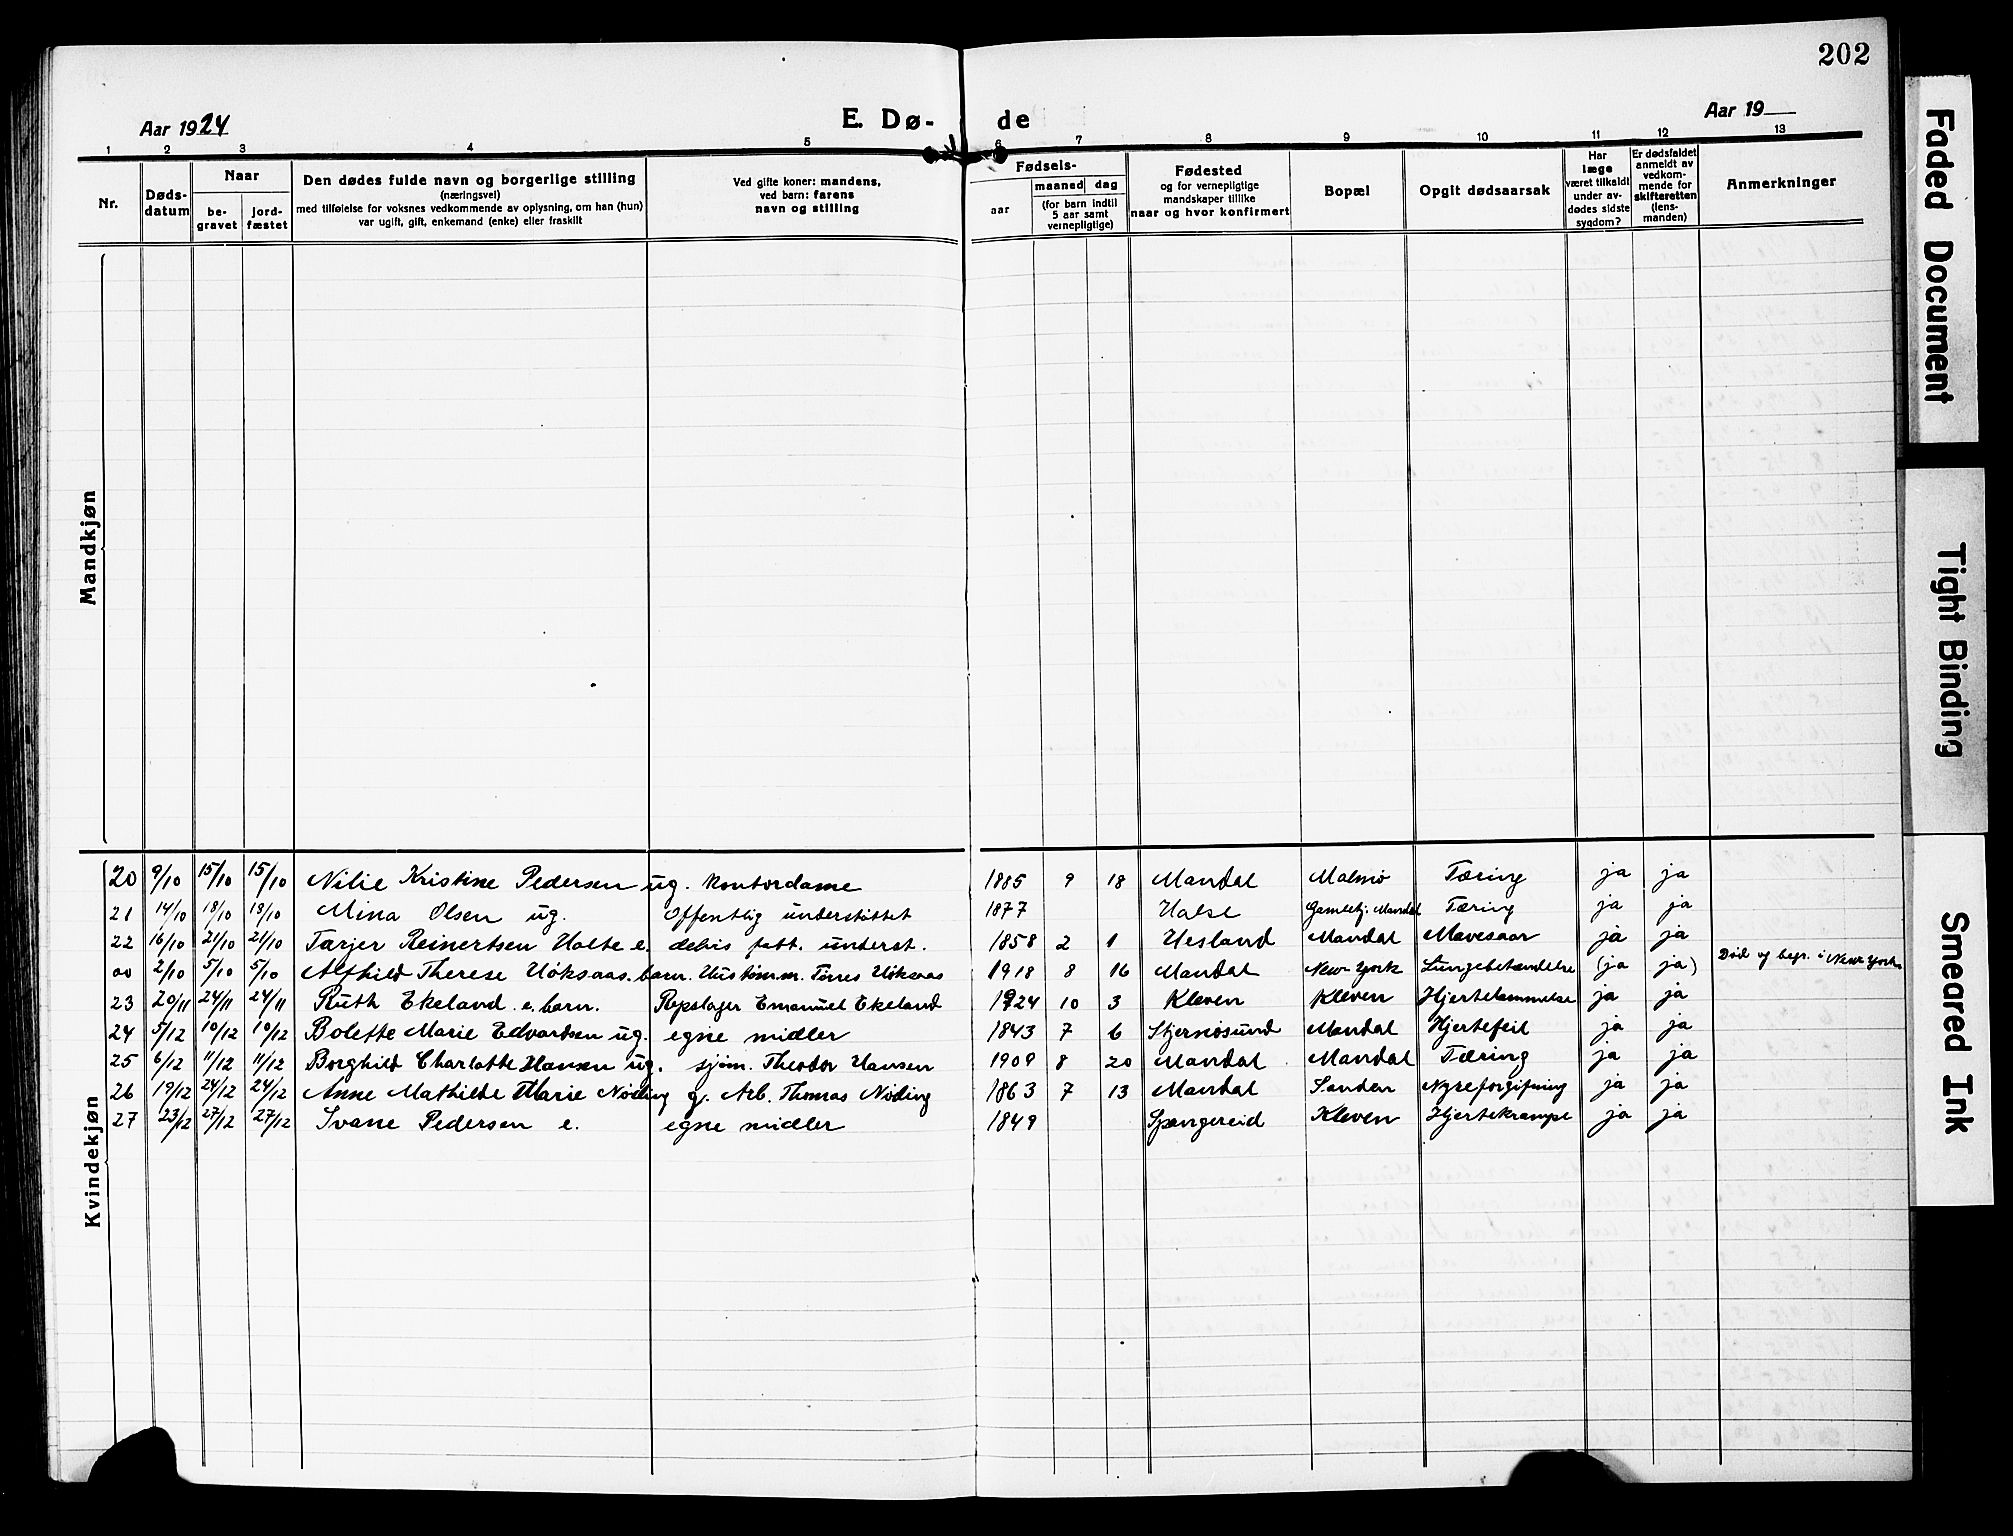 202
Aar 1924 E. Dø- de Aar 19
1 2 3 4 5 6 7 8 9 10 11 12 13
Nr. Døds-datum Naar begravet jordfæstet Den dødes fulde navn og borgerlige stilling (næringsvei) med tilføielse for voksnes vedkommende av oplysning, om han (hun) var ugift, gift, enkemand (enke) eller fraskilt Ved gifte koner: mandens, ved barn: farens navn og stilling Fødsels- aar maaned dag (for barn indtil 5 aar samt vernepligtige) Fødested og for vernepligtige mandskaper tillike naar og hvor konfirmert Bopæl Opgit dødsaarsak Har læge været tilkaldt under avdødes sidste sygdom? Er dødsfaldet anmeldt av vedkommende for skifteretten (lensmanden) Anmerkninger
Mandkjøn
Kvindekjøn
20 9/10 15/10 15/10 Nilie Kristine Pedersen ug. Kontordame 1885 9 18 Mandal Malmø Tæring ja ja
21 14/10 18/10 18/10 Mina Olsen ug. Offentlig understøttet 1877 Halse Gamlehj. Mandal Tæring ja ja
22 16/10 21/10 21/10 Tarjer Reinertsen Holte e. delvis fatt. underst. 1858 2 1 Uesland Mandal Mavesaar ja ja
00 2/10 5/10 5/10 Alfhild Therese Høksaas. barn. Hustømm. Tørres Høksaas 1918 8 16 Mandal New York Lungebetændelse (ja ja) Død og begr. i New York
23 20/11 24/11 24/11 Ruth Ekeland e. barn. Repslager Emanuel Ekeland 1924 10 3 Kleven Kleven Hjertelammelse ja ja
24 5/12 10/12 10/12 Bolette Marie Edvardsen ug. egne midler 1843 7 6 Stjernøsund Mandal Hjertefeil ja ja
25 6/12 11/12 11/12 Borghild Charlotte Hansen ug. sjøm. Theodor Hansen 1909 8 20 Mandal Mandal Tæring ja ja
26 19/12 24/12 24/12 Anne Mathilde Marie Nøding g. Arb. Thomas Nøding 1863 7 13 Mandal Sanden Nyreforgiftning ja ja
27 23/12 27/12 27/12 Ivane Pedersen e. egne midler 1849 Spangereid Kleven Hjertekrampe ja ja
Faded Document
Tight Binding
Smeared Ink